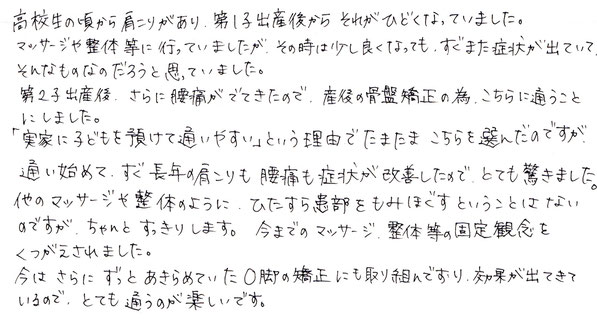 高校生の頃から肩こりがあり、第1子出産後から それがひどくなっていました。
マッサージや整体等に行っていましたが、その時は少し良くなっても、すぐまた症状が出ていて、
そんなものなのだろうと思っていました。
第2子出産後、さらに腰痛がでてきたので、産後の骨盤矯正の為、こちらに通うこと
にしました。
「実家に子どもを預けて通いやすい」という理由でたまたま こちらを選んだのですが、
通い始めて、すぐ長年の肩こりも 腰痛も症状が改善したので、とても驚きました。
他のマッサージや整体のように、ひたすら患部をもみほぐすということはない
のですが、ちゃんと すっきりします。 今までのマッサージ、整体等の固定観念を
くつがえされました。
今は さらに ずっと あきらめていた O脚の矯正にも取り組んでおり、効果が出てきて
いるので、とても 通うのが楽しいです。